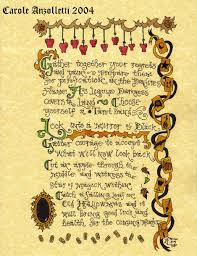 Carole Anzolletti 2004
Gather together your regrets
and pain - prepare them
for purification, in the Beltane
flame. As
covers the land - Choose
yourself a
Look into a mirror of Black.
Gather courage to accept
What will now look back
Cut an apple to
middle and witness the
star of magick within.
falling leaf on
Old Hallowmas and it
will bring good luck and
health, for the coming